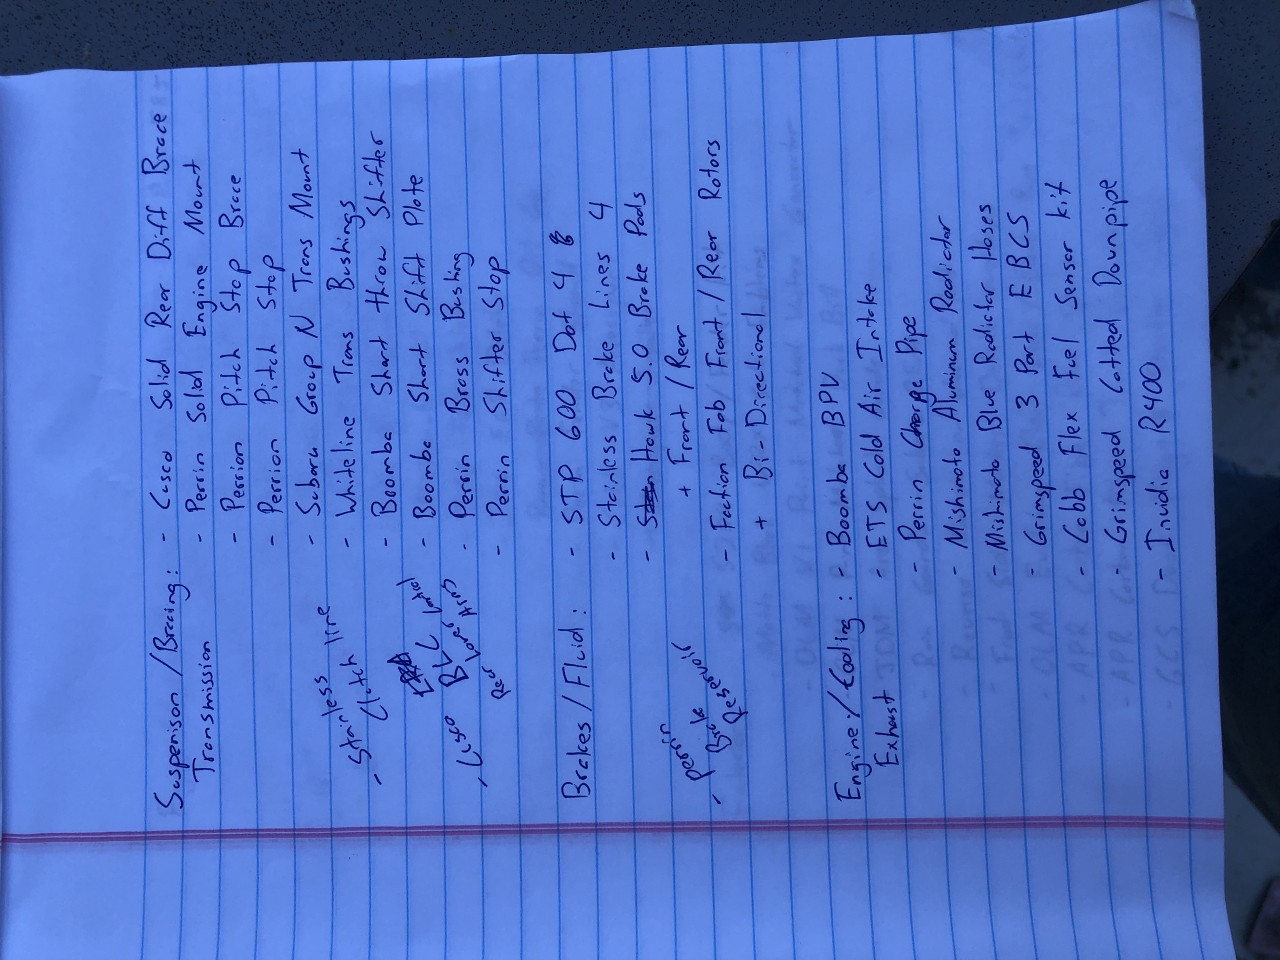 Suspenison/Bracing: - Cusco Solid Rear Diff Brace
Transmission - Perrin Solid Engine Mount
- Perrion Pitch Stop Brace
- Perrion Pitch Stop
- Subaru Group N Trans Mount
- Whiteline Trans Bushings
- Boomba Short throw Shifter
- Boomba Short Shift Plate
- Perrin Brass Bushing
- Perrin Shifter Stop
- Stainless line
Clutch
Rear
Brakes/Fluid: - STP 600 Dot 4
- Stainless Brake Lines 4
- Hawk 5.0 Brake Pads
+ Front/Rear
- Faction Fab/Front/Rear Rotors
+ Bi-Directional
- Perrin
Reservoir
Engine:/Cooling: - Boomba BPV
Exhaust - ETS Cold Air Intake
- Perrin Charge Pipe
- Mishimoto Aluminum Radiator
- Mishimoto Blue Radiator Hoses
- Grimspeed 3 Port EBCS
- Cobb Flex Fuel Sensor kit
- Grimspeed Catted Downpipe
- Invidia R400